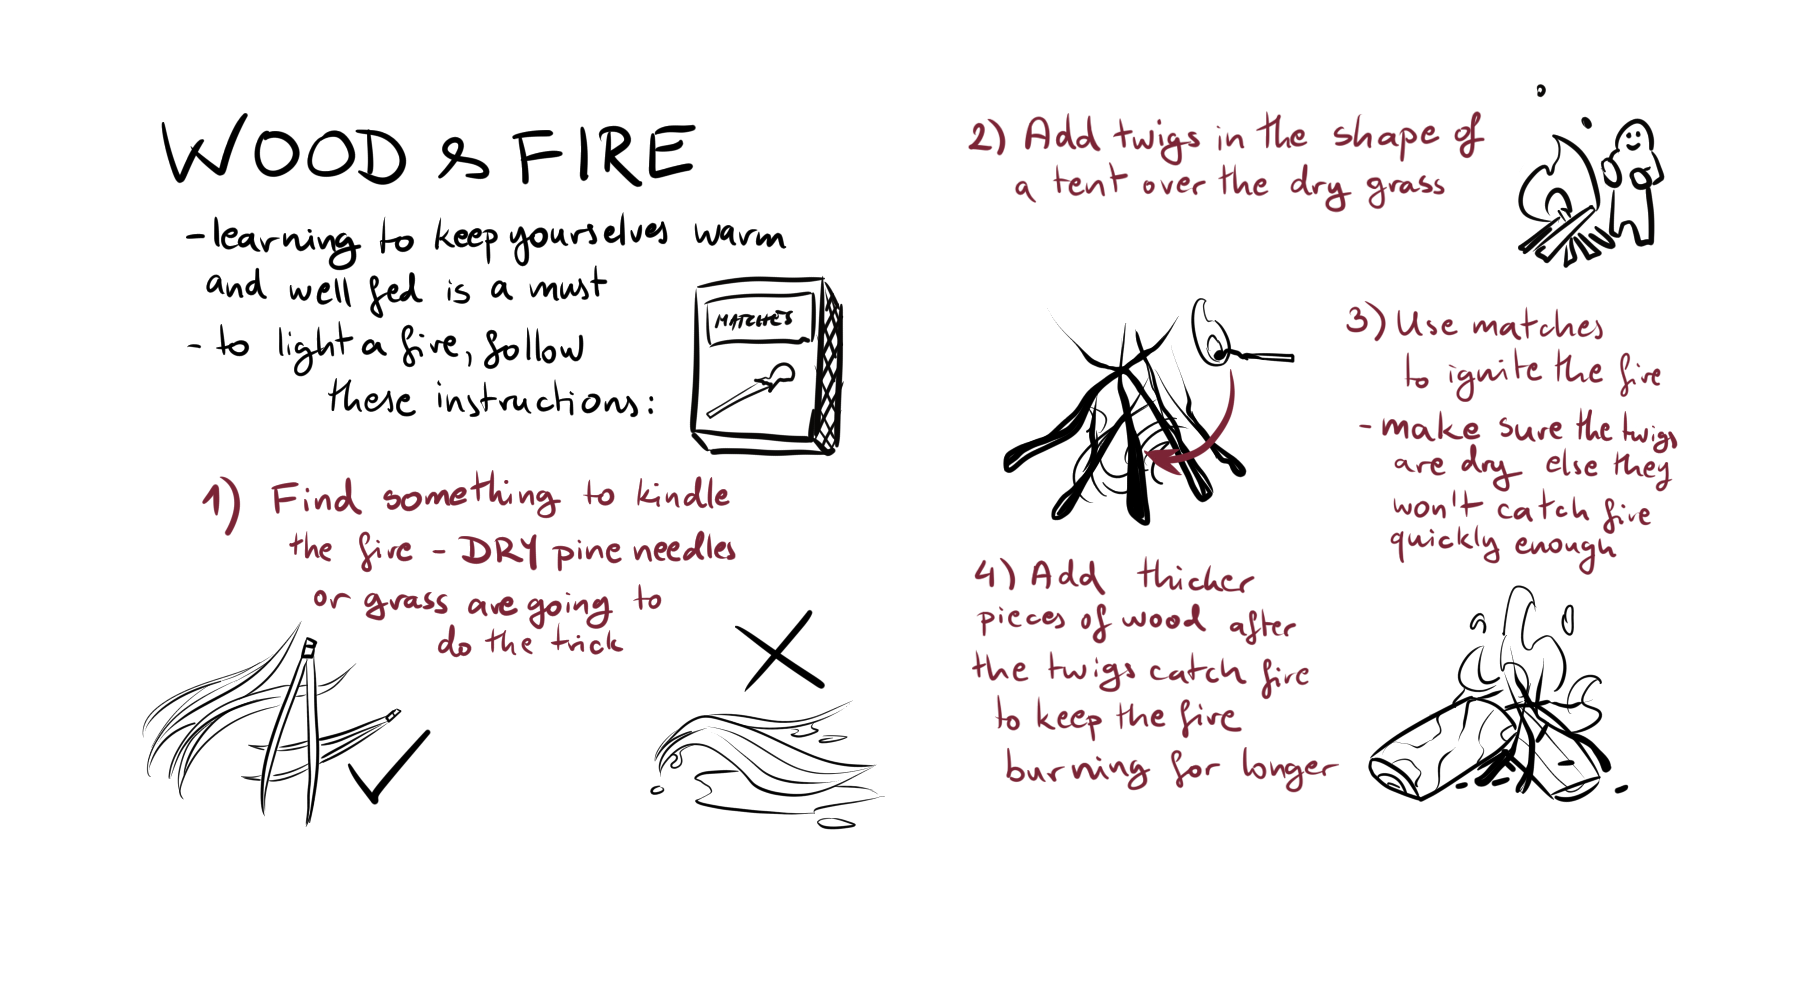 WOOD & FIRE
- learning to keep yourselves warm
and well fed is a must
- to light a fire, follow
these instructions:
MATCHES
1) Find something to kindle
the fire - DRY pine needles
or grass are going to
do the trick
2) Add twigs in the shape of
a tent over the dry grass
3) Use matches
to ignite the fire
- make sure the twigs
are dry else they
won't catch fire
quickly enough
4) Add thicker
pieces of wood after
the twigs catch fire
to keep the fire
burning for longer